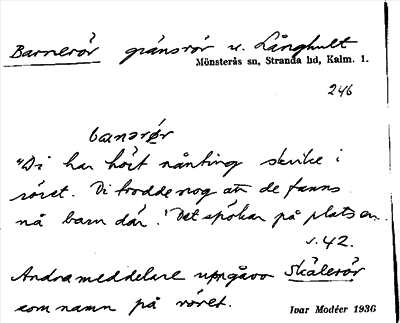 Barnerör gränsrör v. Långhult
Mönsterås sn, Stranda hd, Kalm. l.
246
banərør
"Di har hört nånting skrike i
röret. Di trodde nog att de fanns
nå barn där." Det spökar på platsen.
s. 42.
Andra meddelare uppgåvo Skälerör
som namn på röret.
Ivar Modéer 1936